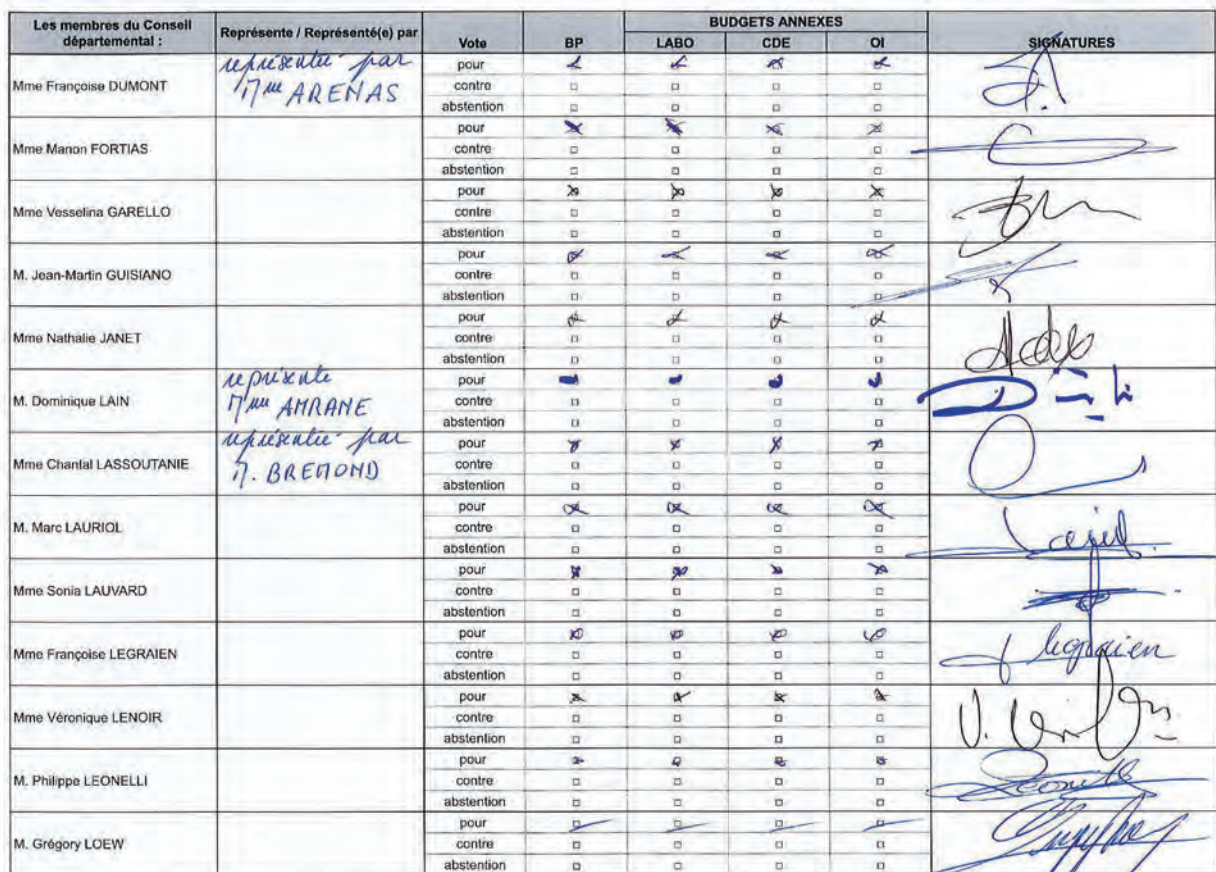 Les membres du Conseil départemental : Représente / Représenté(e) par Vote BP BUDGETS ANNEXES LABO CDE OI SIGNATURES
Mme Françoise DUMONT
représentée par
Mme ARENAS
pour
contre
abstention
Mme Manon FORTIAS
pour
contre
abstention
Mme Vesselina GARELLO
pour
contre
abstention
M. Jean-Martin GUISIANO
pour
contre
abstention
Mme Nathalie JANET
pour
contre
abstention
M. Dominique LAIN
représente
Mme AMRANE
pour
contre
abstention
Mme Chantal LASSOUTANIE
représentée par
M. BREMOND
pour
contre
abstention
M. Marc LAURIOL
pour
contre
abstention
Mme Sonia LAUVARD
pour
contre
abstention
Mme Françoise LEGRAIEN
pour
contre
abstention
legraien
Mme Véronique LENOIR
pour
contre
abstention
M. Philippe LEONELLI
pour
contre
abstention
M. Grégory LOEW
pour
contre
abstention